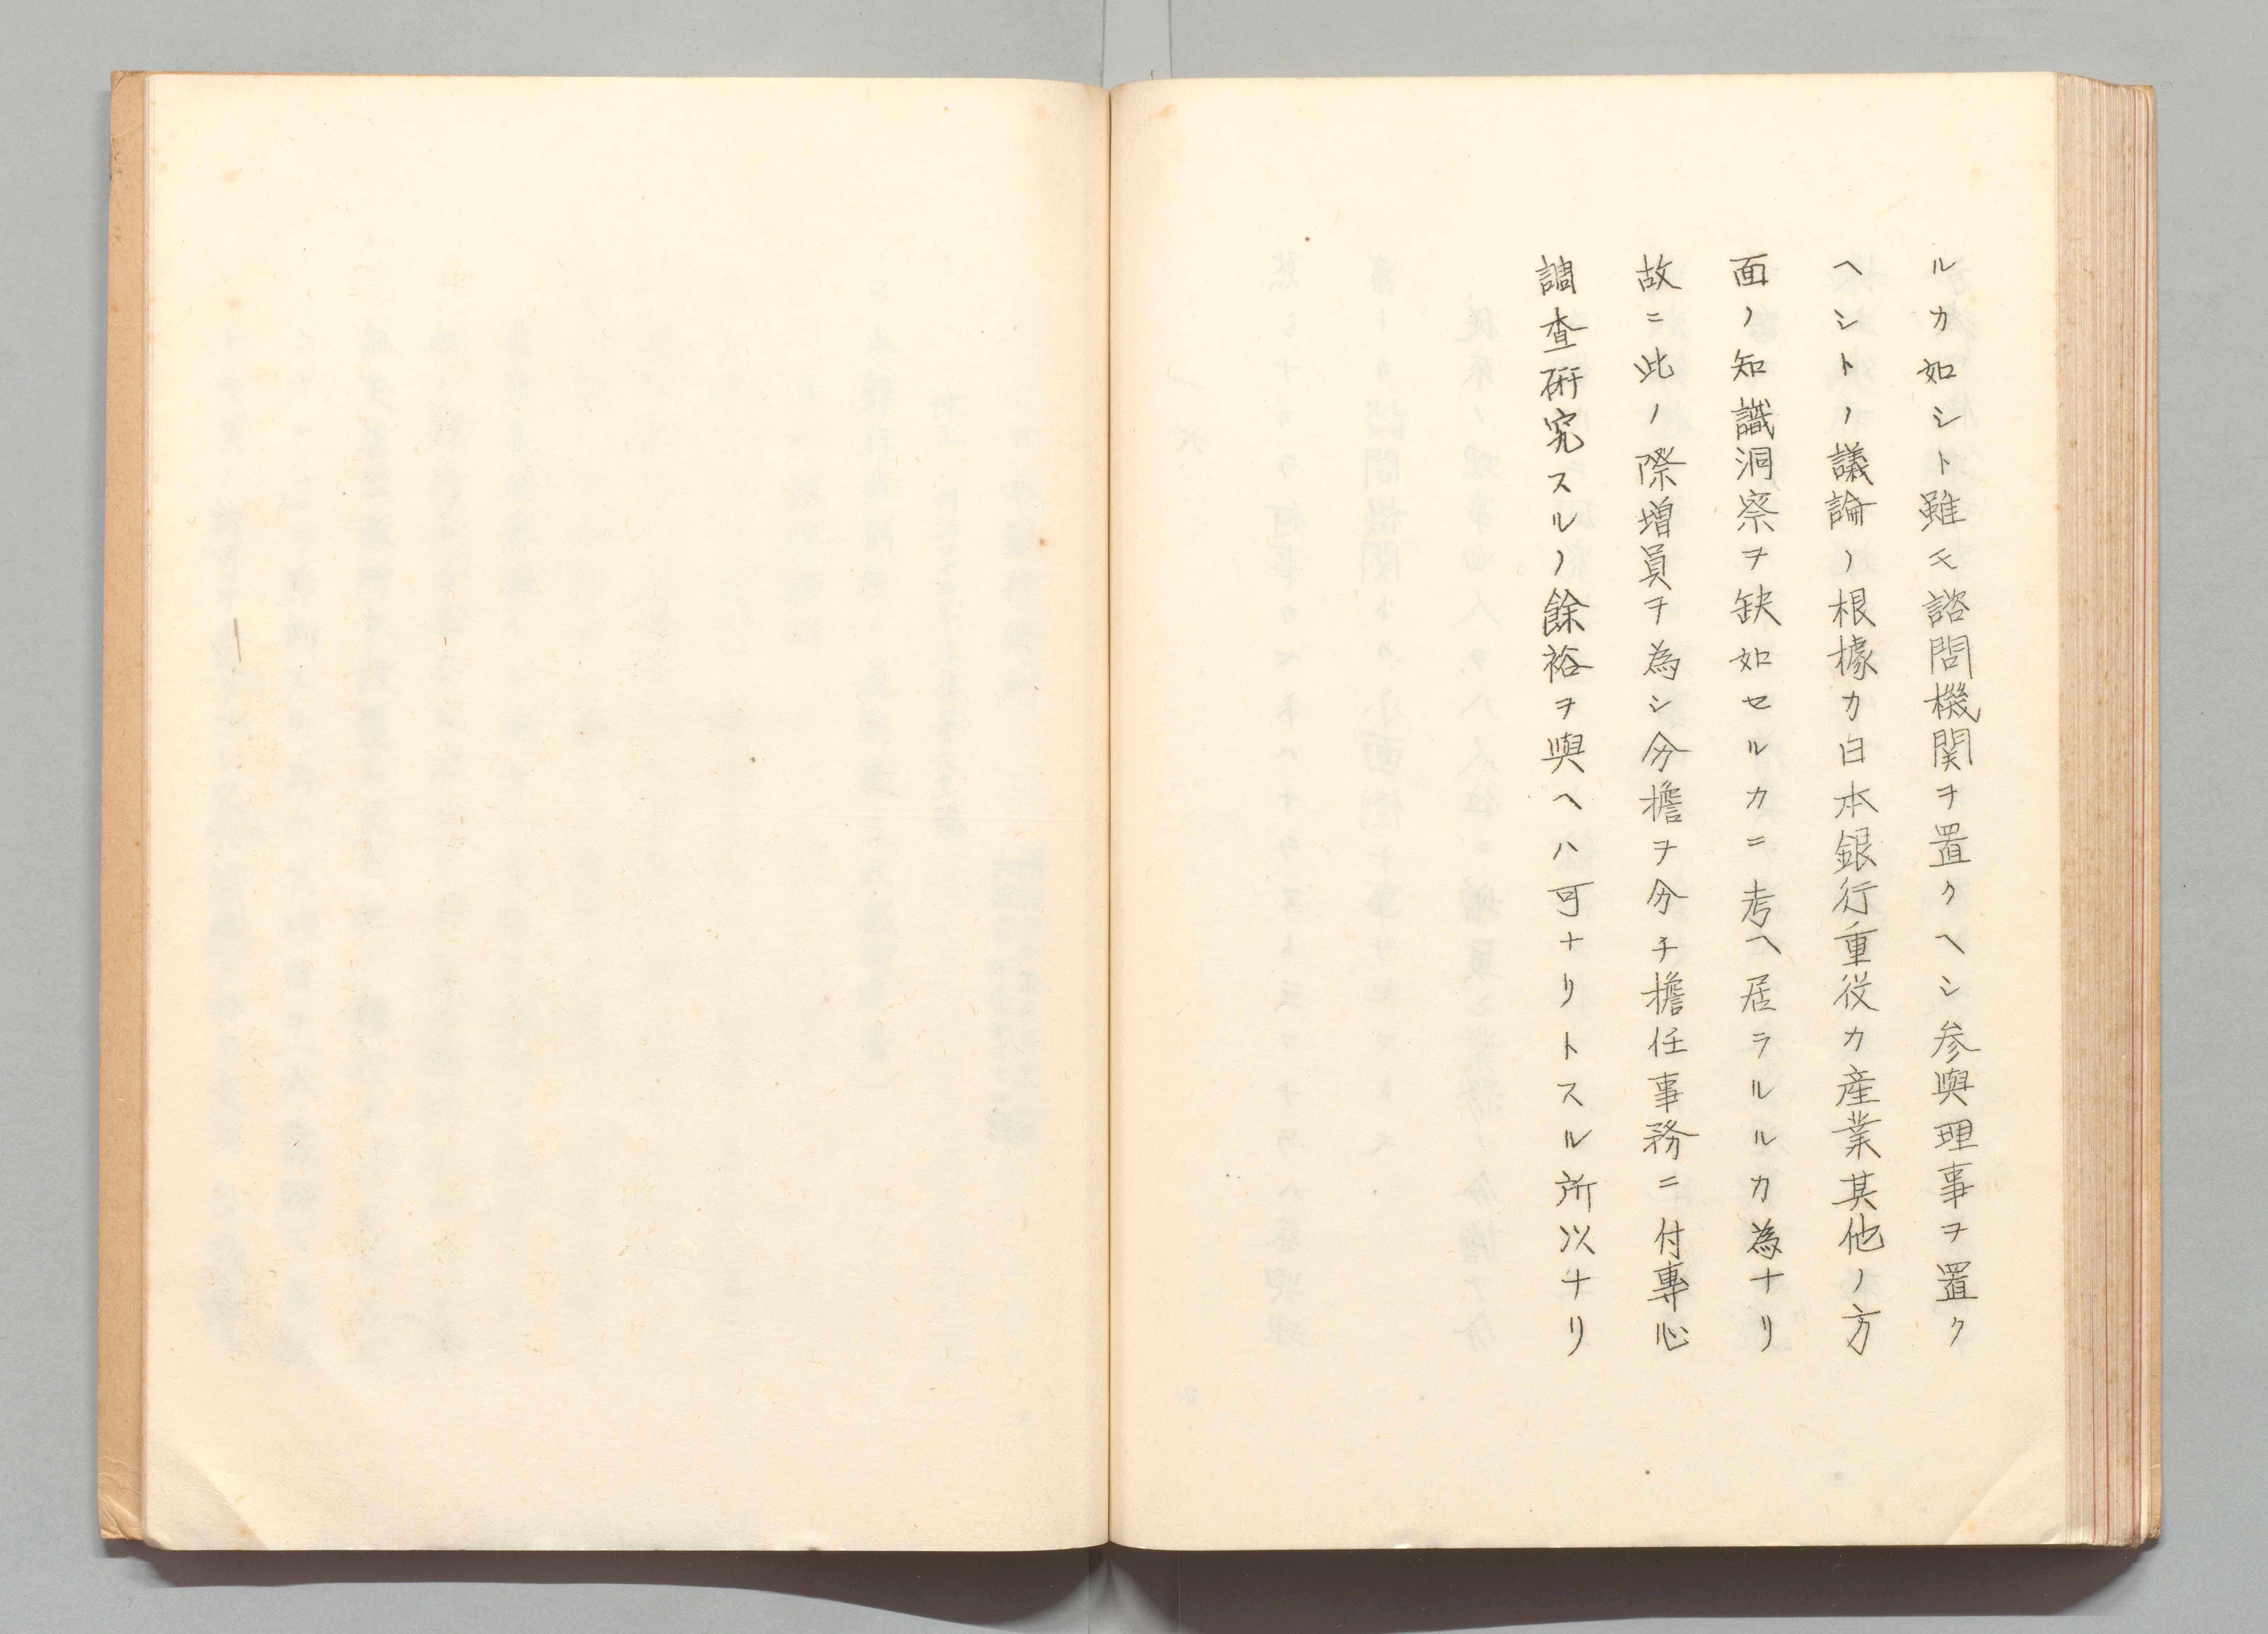 ルカ如シト雖モ諮問機関ヲ置クヘシ参與理事ヲ置ク
ヘシトノ議論ノ根據カ日本銀行重役カ産業其他ノ方
面ノ知識洞察ヲ缺如セルカニ考ヘ居ラルルカ為ナリ
故ニ此ノ際増員ヲ為シ分擔ヲ分チ擔任事務ニ付專心
調査研究スルノ餘裕ヲ與ヘハ可ナリトスル所以ナリ